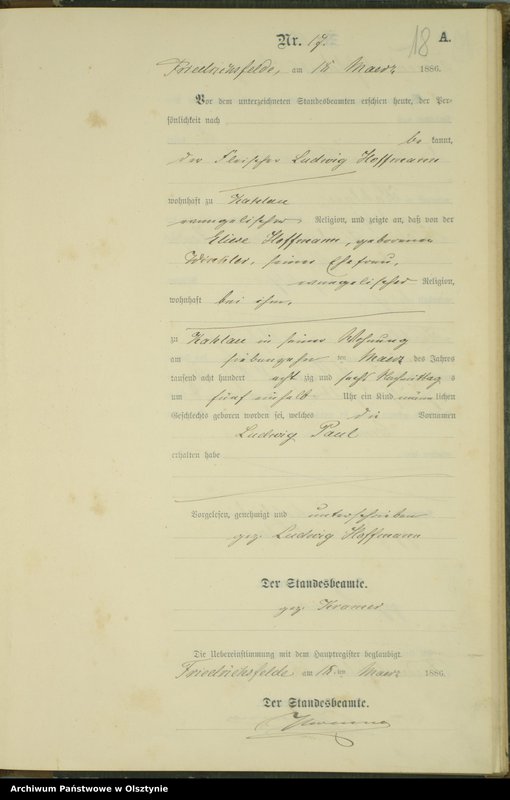 18
Nr. 17. A.
Friedrichsfelde, am 18 Maerz 1886.
Vor dem unterzeichneten Standesbeamten erschien heute, der Per-
sönlichkeit nach
be kannt,
der Fleischer Ludwig Hoffmann
wohnhaft zu
evangelischer Religion, und zeigte an, daß von der
Eliese Hoffmann, geborenen
Winkler, seiner Ehefrau,
evangelischer Religion,
wohnhaft bei ihm,
zu in seiner Wohnung
am siebenzehn ten Maerz des Jahres
tausend acht hundert acht zig und sechs Nachmittag s
um fünf einhalb Uhr ein Kind männ lichen
Geschlechts geboren worden sei, welches die Vornamen
Ludwig Paul
erhalten habe
Vorgelesen, genehmigt und unterschrieben
gez. Ludwig Hoffmann
Der Standesbeamte.
gez. Kramer
Die Uebereinstimmung mit dem Hauptregister beglaubigt.
Friedrichsfelde am 18 ten Maerz 1886.
Der Standesbeamte.
Archiwum Państwowe w Olsztynie